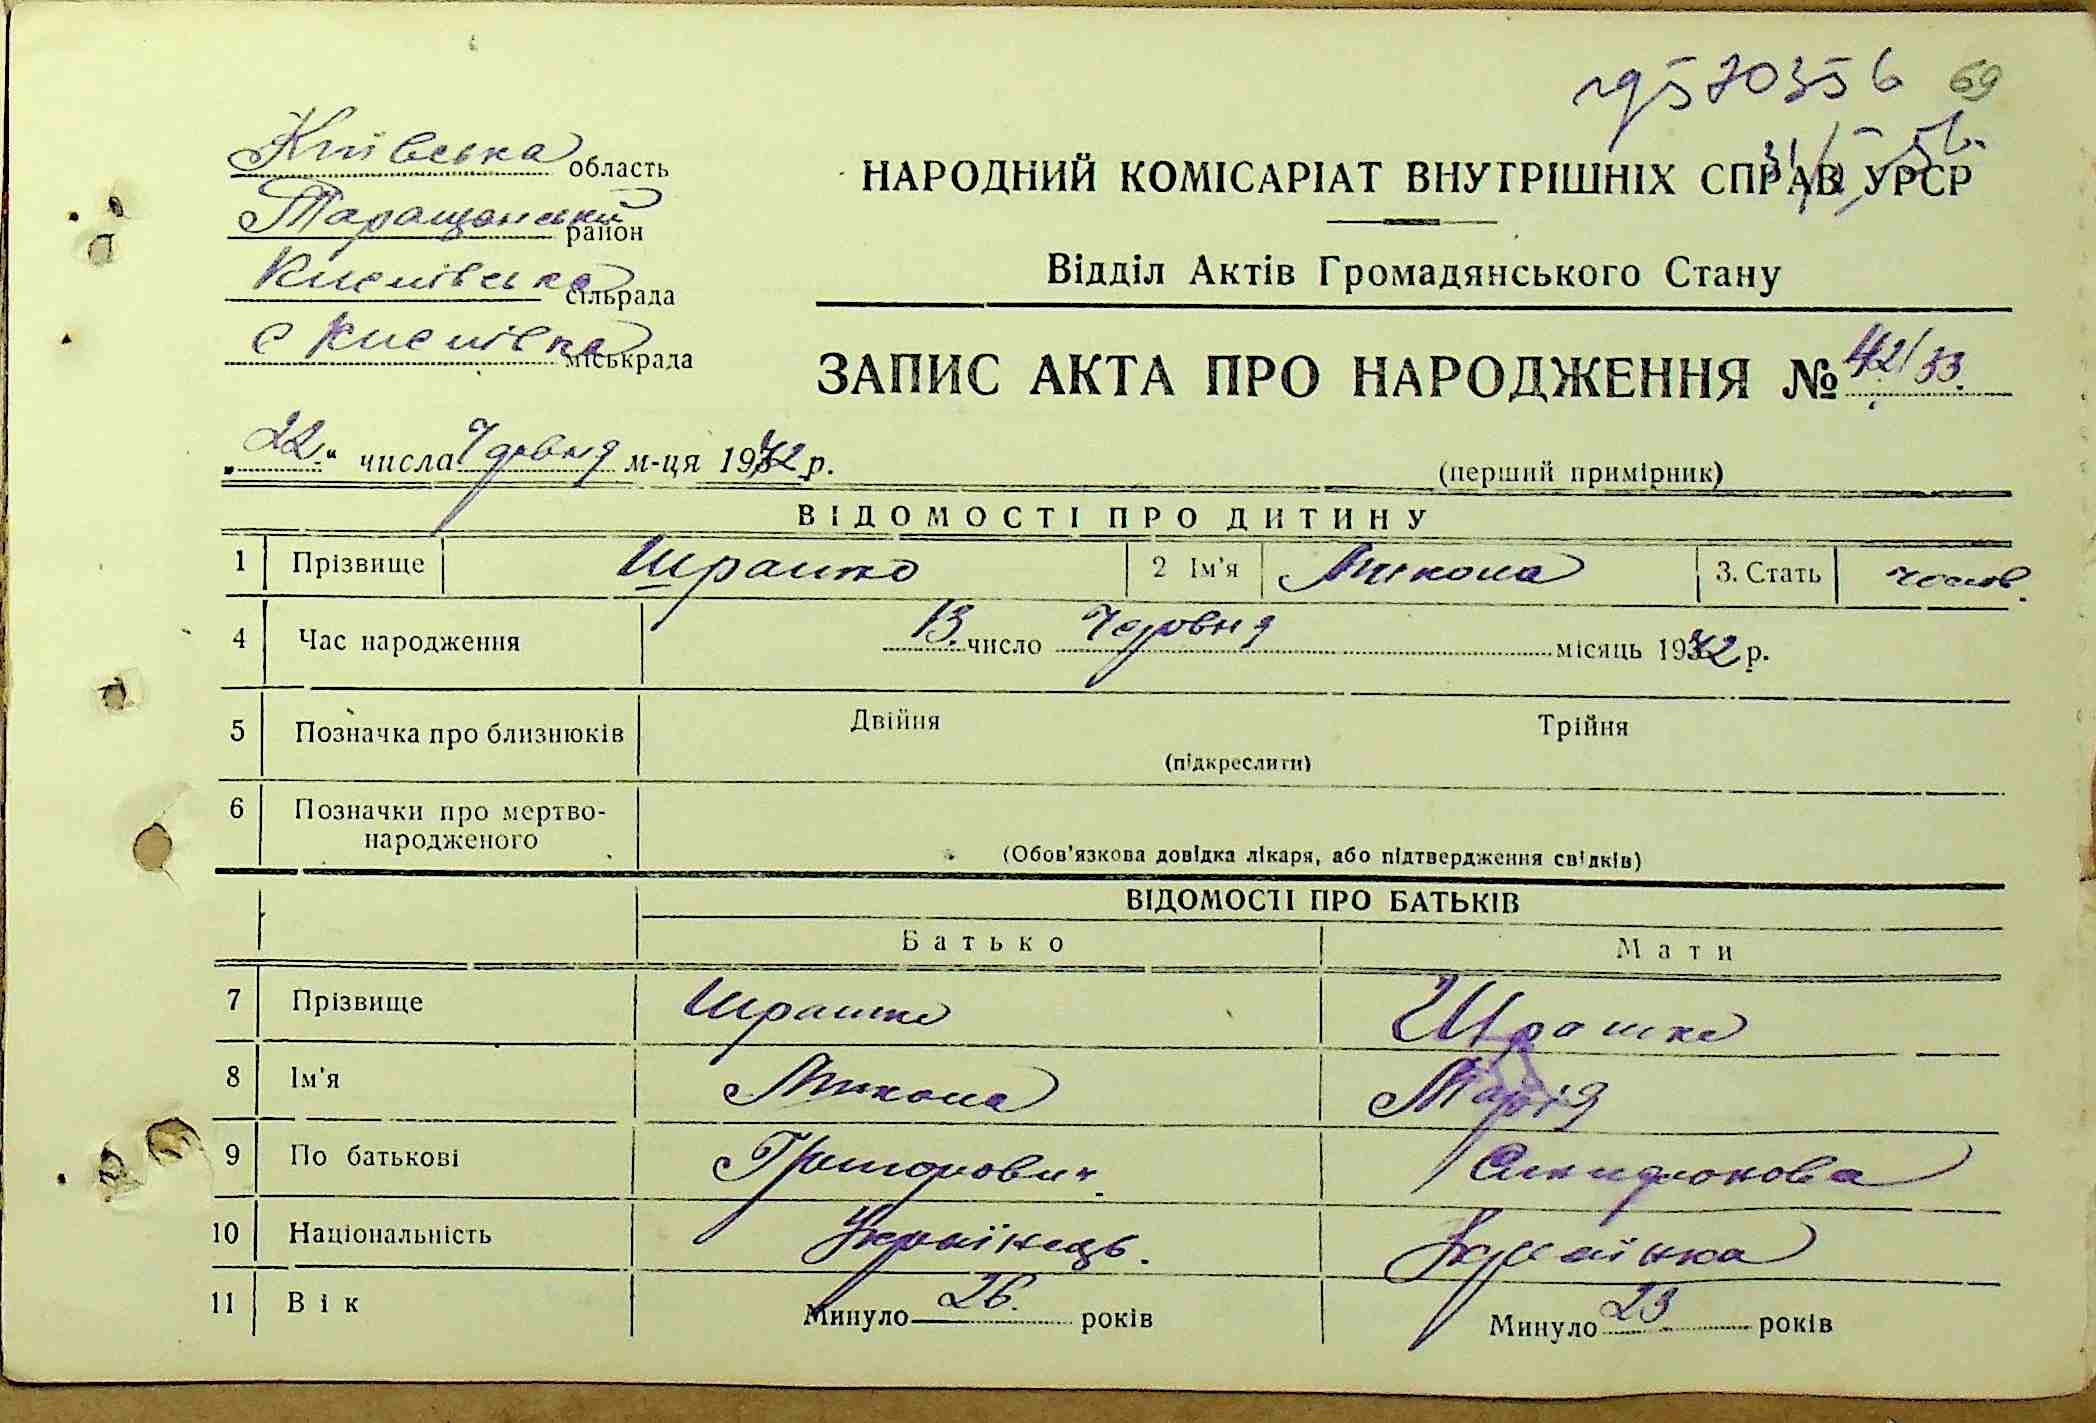 570356 69
Київська область
Таращанський район
сільрада
с міськрада
НАРОДНИЙ КОМІСАРІАТ ВНУТРІШНІХ СПРАВ УРСР
Відділ Актів Громадянського Стану
ЗАПИС АКТА ПРО НАРОДЖЕННЯ № 42/33.
„22" числа Червня м-ця 1942 р.
(перший примірник)
ВІДОМОСТІ ПРО ДИТИНУ
1 Прізвище Шрашко 2 Ім'я Микола 3. Стать чолов.
4 Час народження 13. число Червня місяць 1942 р.
5 Позначка про близнюків Двійня Трійня
(підкреслити)
6 Позначки про мертво-
народженого
(Обов'язкова довідка лікаря, або підтвердження свідків)
ВІДОМОСТІ ПРО БАТЬКІВ
Батько Мати
7 Прізвище Шрашко Шрашко
8 Ім'я Микола Марія
9 По батькові Григорович
10 Національність Українець. Українка
11 Вік Минуло 26. років Минуло 23 років